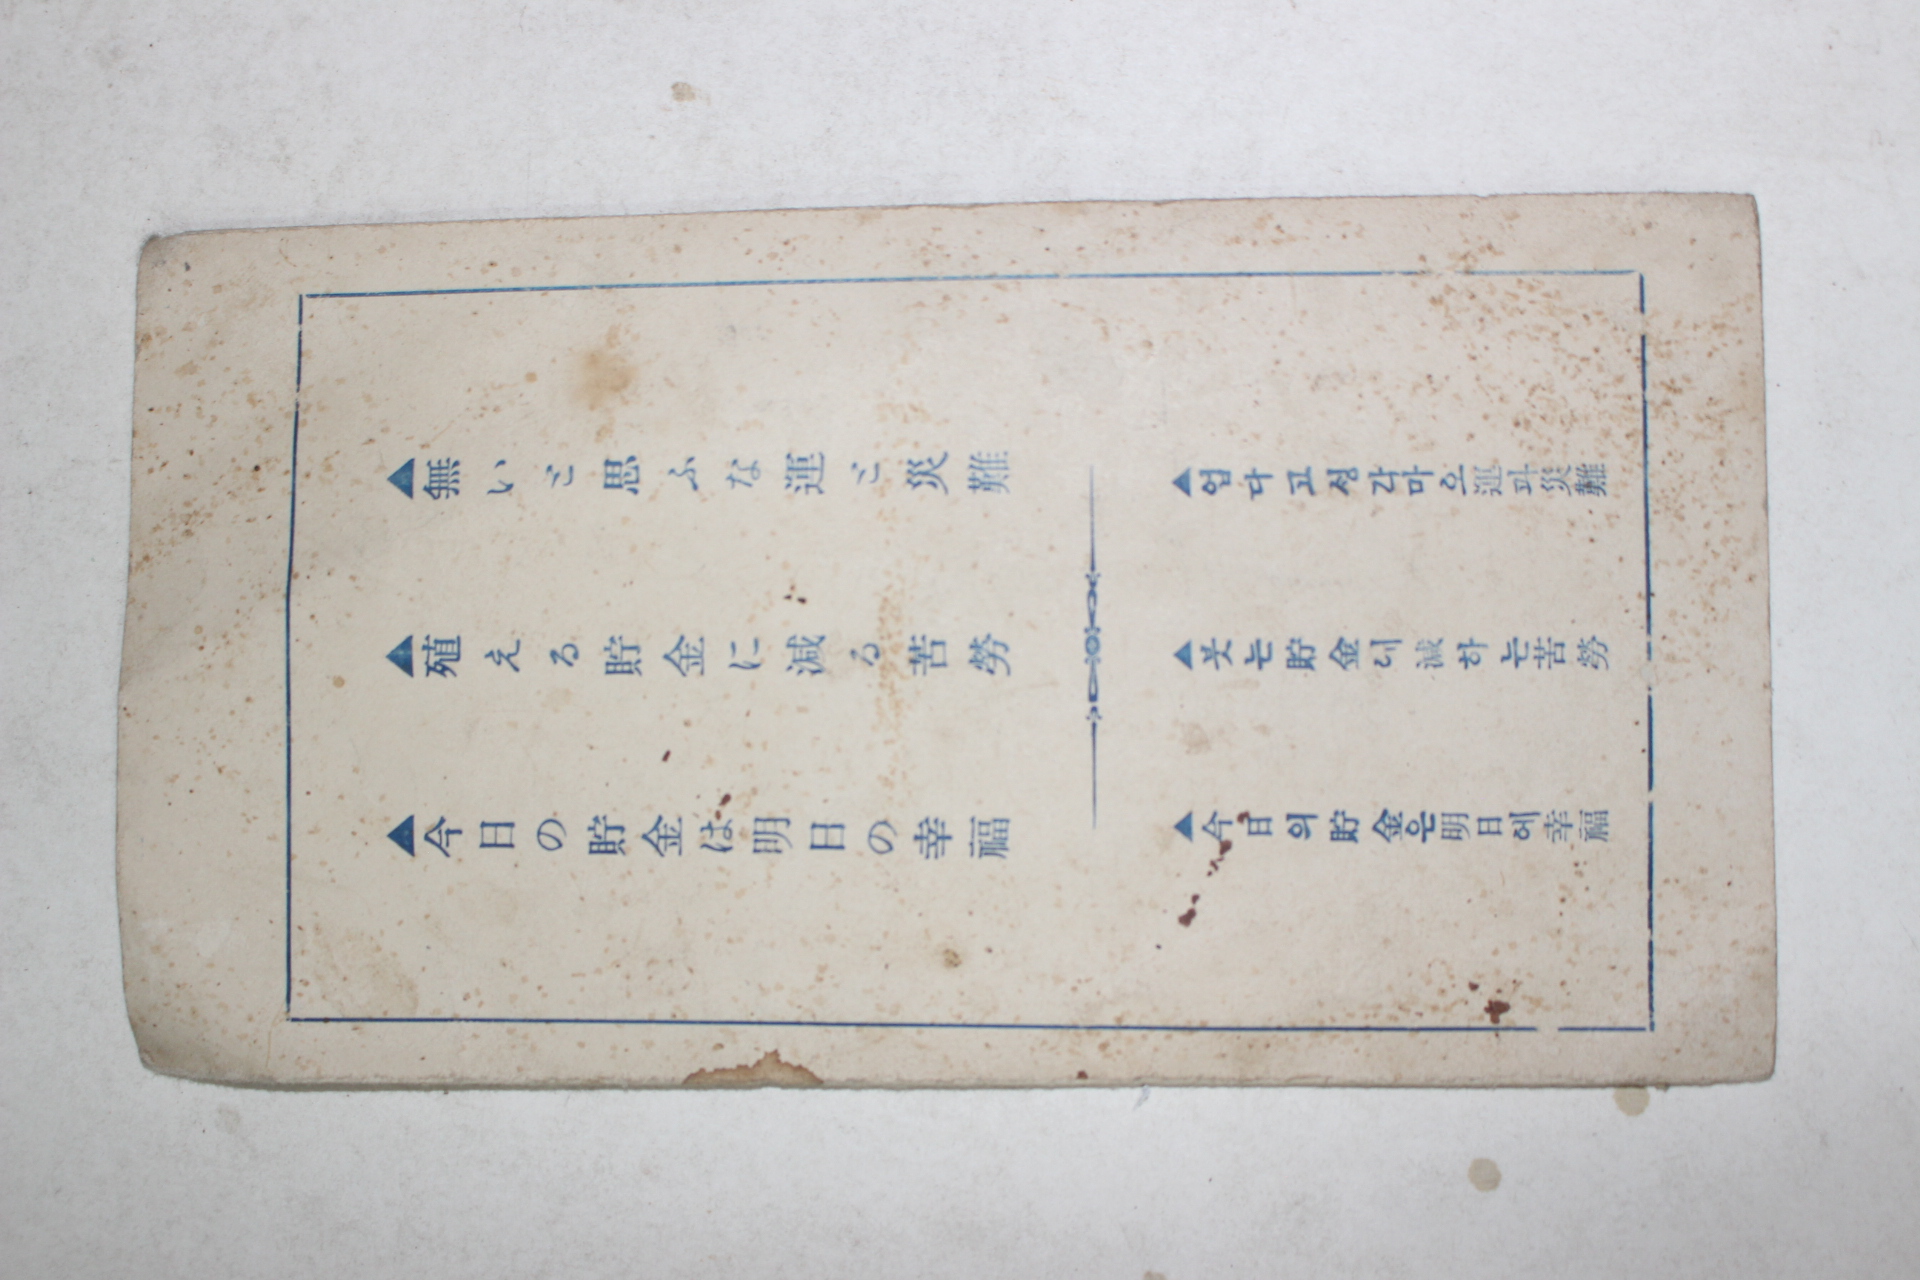 ▲無いと思ふな運と災難
▲殖える貯金に減る苦勞
▲今日の貯金は明日の幸福
▲업다고성각마오運과災難
▲붓는貯金에減하는苦勞
▲今日의貯金은明日에幸福